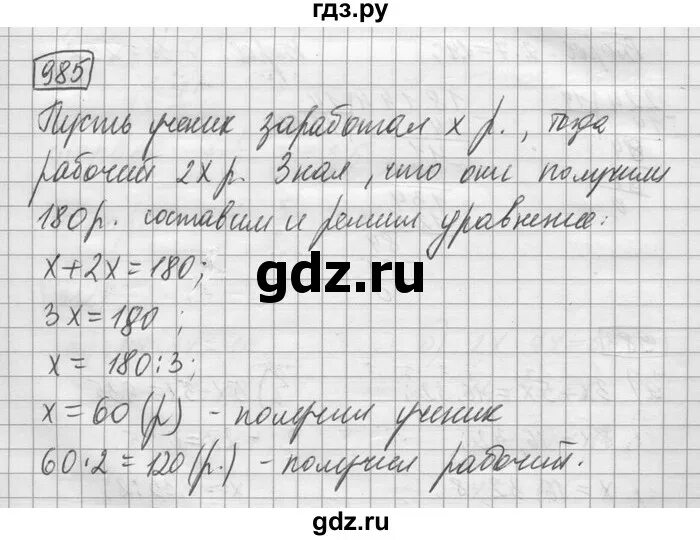 гдз.ру
985
Пусть ученик заработал x р., тогда
рабочий 2x р. Зная, что они получили
180 р. составим и решим уравнение:
x+2x=180;
gdz.ru
3x=180;
x=180:3;
x=60(р) - получил ученик
60·2=120(р.) - получил рабочий.
gdz.ru